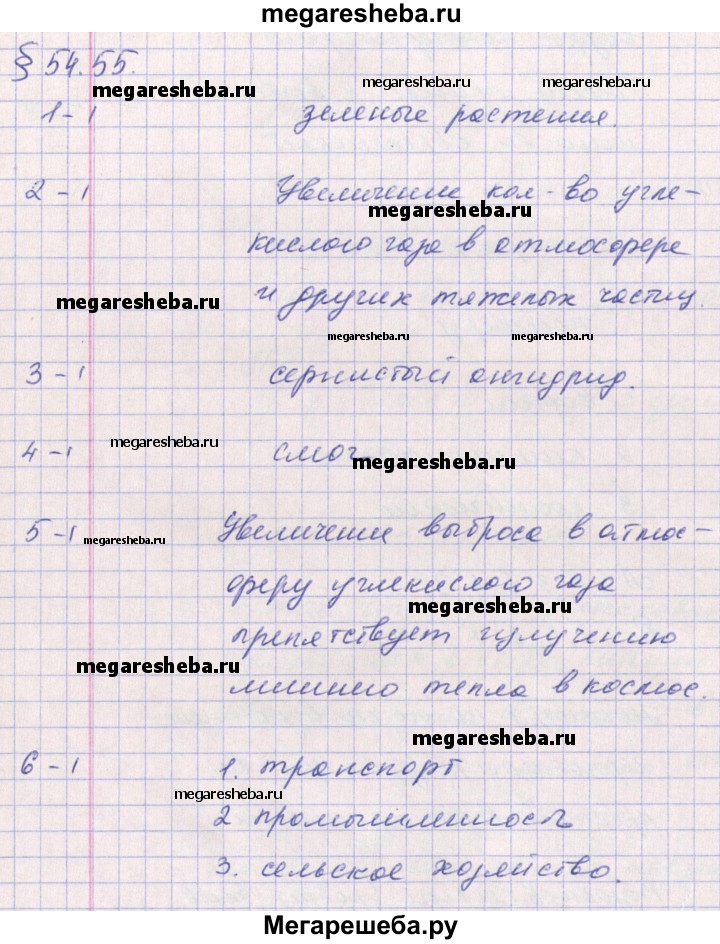 megaresheba.ru
§ 54.55.
megaresheba.ru
megaresheba.ru megaresheba.ru
1-1 зеленые растения.
2-1 Увеличение кол-во угле-
megaresheba.ru
кислого газа в атмосфере
megaresheba.ru
и других тяжелых частиц.
megaresheba.ru megaresheba.ru
3-1 сернистый ангидрид.
megaresheba.ru
4-1 смог
megaresheba.ru
5-1 Увеличение выброса в атмос-
megaresheba.ru
феру углекислого газа
megaresheba.ru
препятствует излучению
megaresheba.ru
лишнего тепла в космос.
megaresheba.ru
6-1 1. транспорт
megaresheba.ru
2 промышленность
3. сельское хозяйство.
Мегарешеба.ру